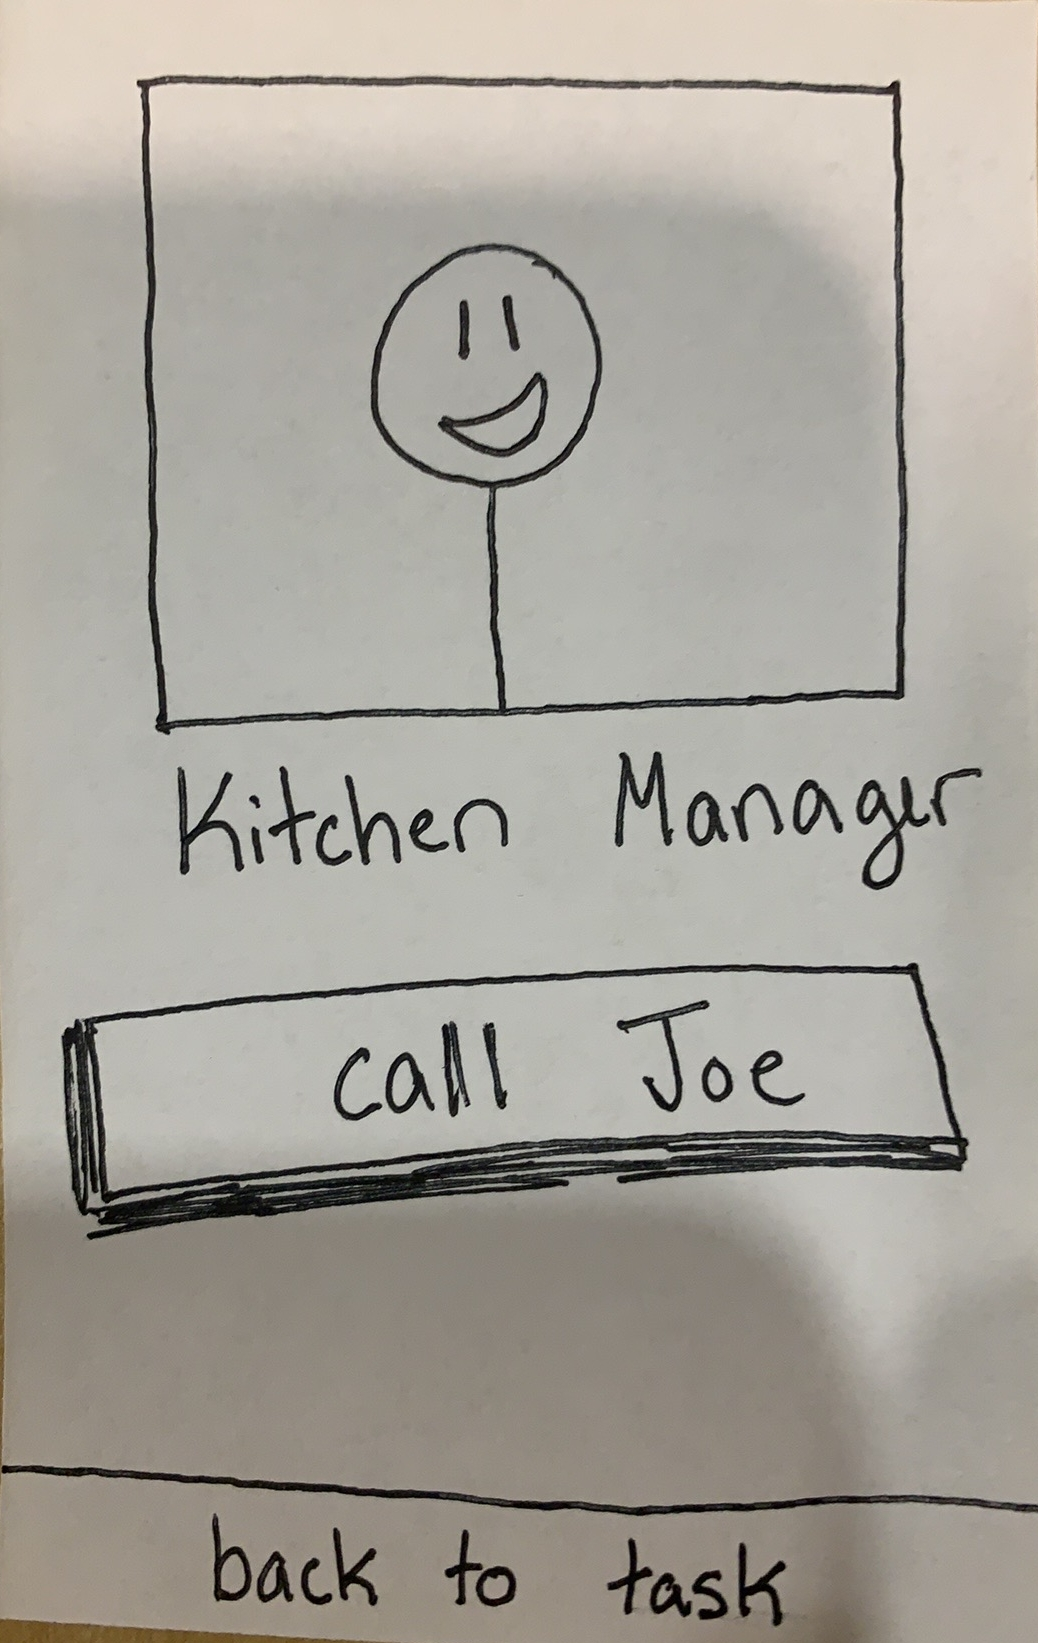 Kitchen Manager
call Joe
back to task